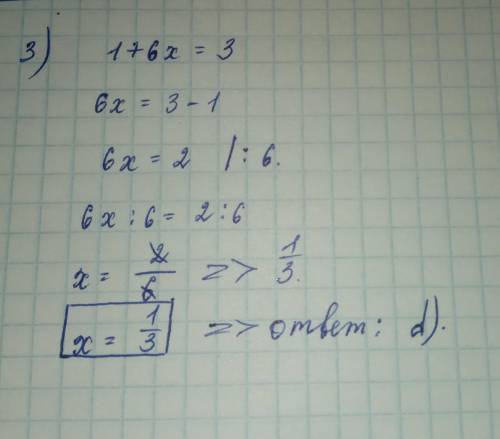 3) 1+6x = 3
6x = 3 - 1
6x = 2 | : 6.
6x : 6 = 2 : 6
x = 2/6 => 1/3.
x = 1/3 => ответ: d).